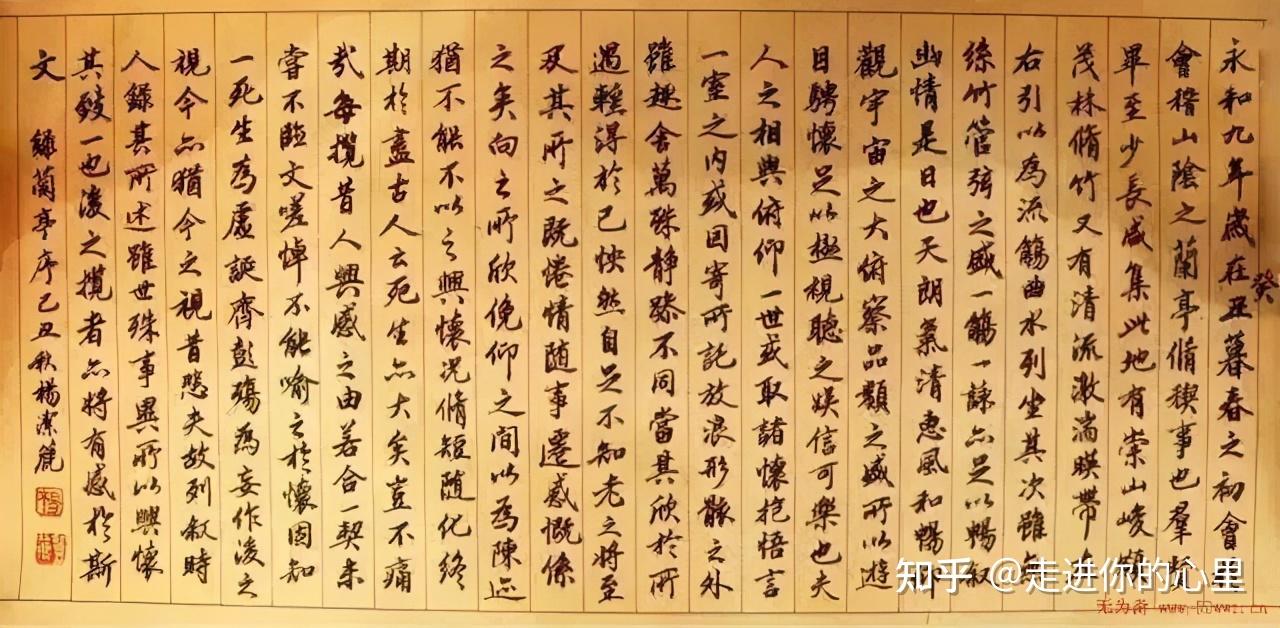 永和九年歲在癸丑暮春之初會
會稽山陰之蘭亭脩稧事也羣賢
畢至少長咸集此地有崇山峻領
茂林脩竹又有清流激湍暎帶
右引以為流觴曲水列坐其次雖
絲竹管弦之盛一觴一詠亦足以暢叙
幽情是日也天朗氣清惠風和暢
觀宇宙之大俯察品類之盛所以遊
目騁懷足以極視聽之娛信可樂也夫
人之相與俯仰一世或取諸懷抱悟言
一室之内或因寄所託放浪形骸之外
雖趣舍萬殊静躁不同當其欣於所
遇輒得於己怏然自足不知老之將至
及其所之既惓情随事遷感慨係
之矣向之所欣俛仰之間以為陳迹
猶不能不以之興懷況脩短随化終
期於盡古人云死生亦大矣豈不痛
哉每攬昔人興感之由若合一契未
嘗不臨文嗟悼不能喻之於懷固知
一死生為虛誕齊彭殤為妄作後之
視今亦猶今之視昔悲夫故列叙時
人錄其所述雖世殊事異所以興懷
其致一也後之攬者亦將有感於斯
文 錄蘭亭序己丑秋楊潔篪
知乎 @走进你的心里